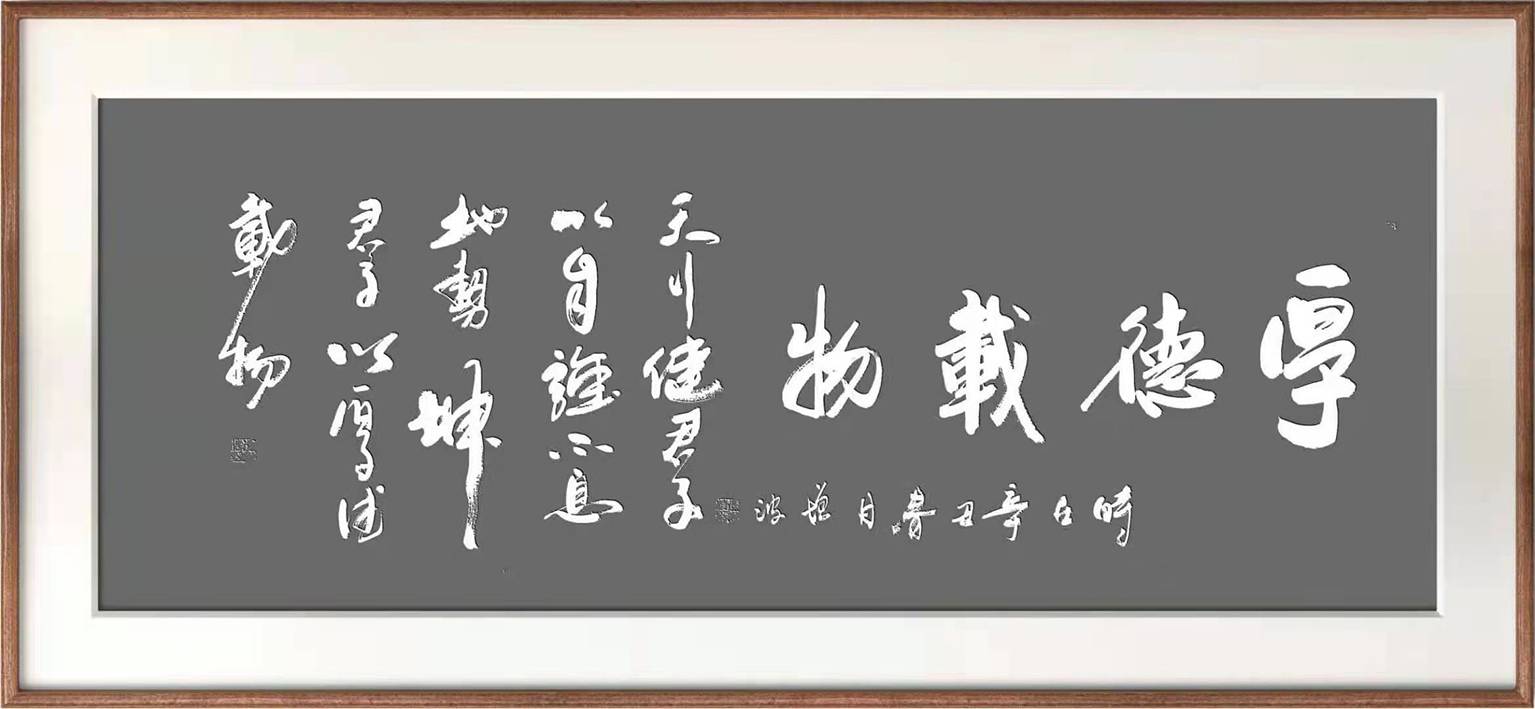 厚德載物
時在辛丑春月增波
天行健君子
以自強不息
地勢坤
君子以厚德
載物